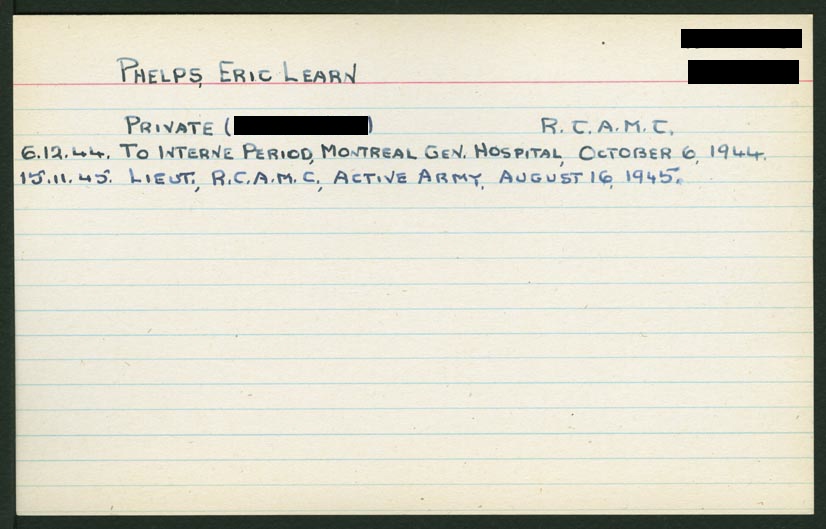 PHELPS, ERIC LEARN
PRIVATE ( ) R.C.A.M.C.
6.12.44. TO INTERNE PERIOD, MONTREAL GEN. HOSPITAL, OCTOBER 6, 1944.
15.11.45. LIEUT., R.C.A.M.C., ACTIVE ARMY, AUGUST 16, 1945.